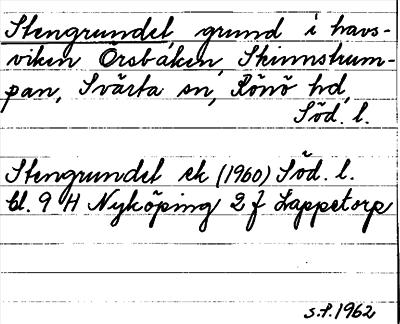 Stengrundet, grund i havs-
viken Örsbaken, Skinnshum-
pan, Svärta sn, Rönö hd,
Söd. l.
Stengrundet ek (1960) Söd. l.
bl. 9 H Nyköping 2 f Lappetorp
s.f. 1962